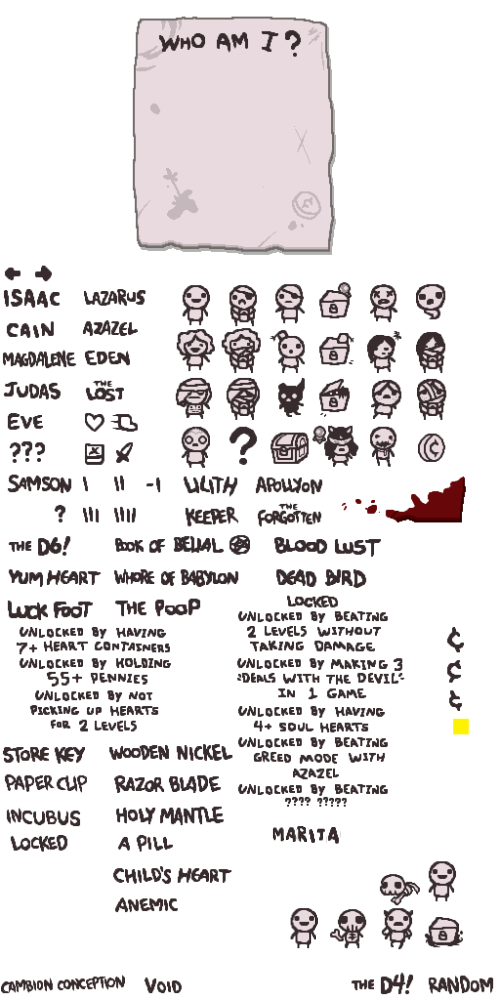 WHO AM I?
ISAAC LAZARUS
CAIN AZAZEL
MAGDALENE EDEN
JUDAS THE LOST
EVE
???
?
SAMSON I II -1 LILITH APOLLYON
? III IIII KEEPER THE FORGOTTEN
THE D6! BOOK OF BELIAL BLOOD LUST
YUM HEART WHORE OF BABYLON DEAD BIRD
LUCK FOOT THE POOP
UNLOCKED BY HAVING
7+ HEART CONTAINERS
UNLOCKED BY HOLDING
55+ PENNIES
UNLOCKED BY NOT
PICKING UP HEARTS
FOR 2 LEVELS
LOCKED
UNLOCKED BY BEATING
2 LEVELS WITHOUT
TAKING DAMAGE
UNLOCKED BY MAKING 3
"DEALS WITH THE DEVIL"
IN 1 GAME
UNLOCKED BY HAVING
4+ SOUL HEARTS
UNLOCKED BY BEATING
GREED MODE WITH
AZAZEL
UNLOCKED BY BEATING
???? ?????
¢
¢
¢
STORE KEY WOODEN NICKEL
PAPER CLIP RAZOR BLADE
INCUBUS HOLY MANTLE
LOCKED A PILL
CHILD'S HEART
ANEMIC
MARITA
CAMBION CONCEPTION VOID THE D4! RANDOM